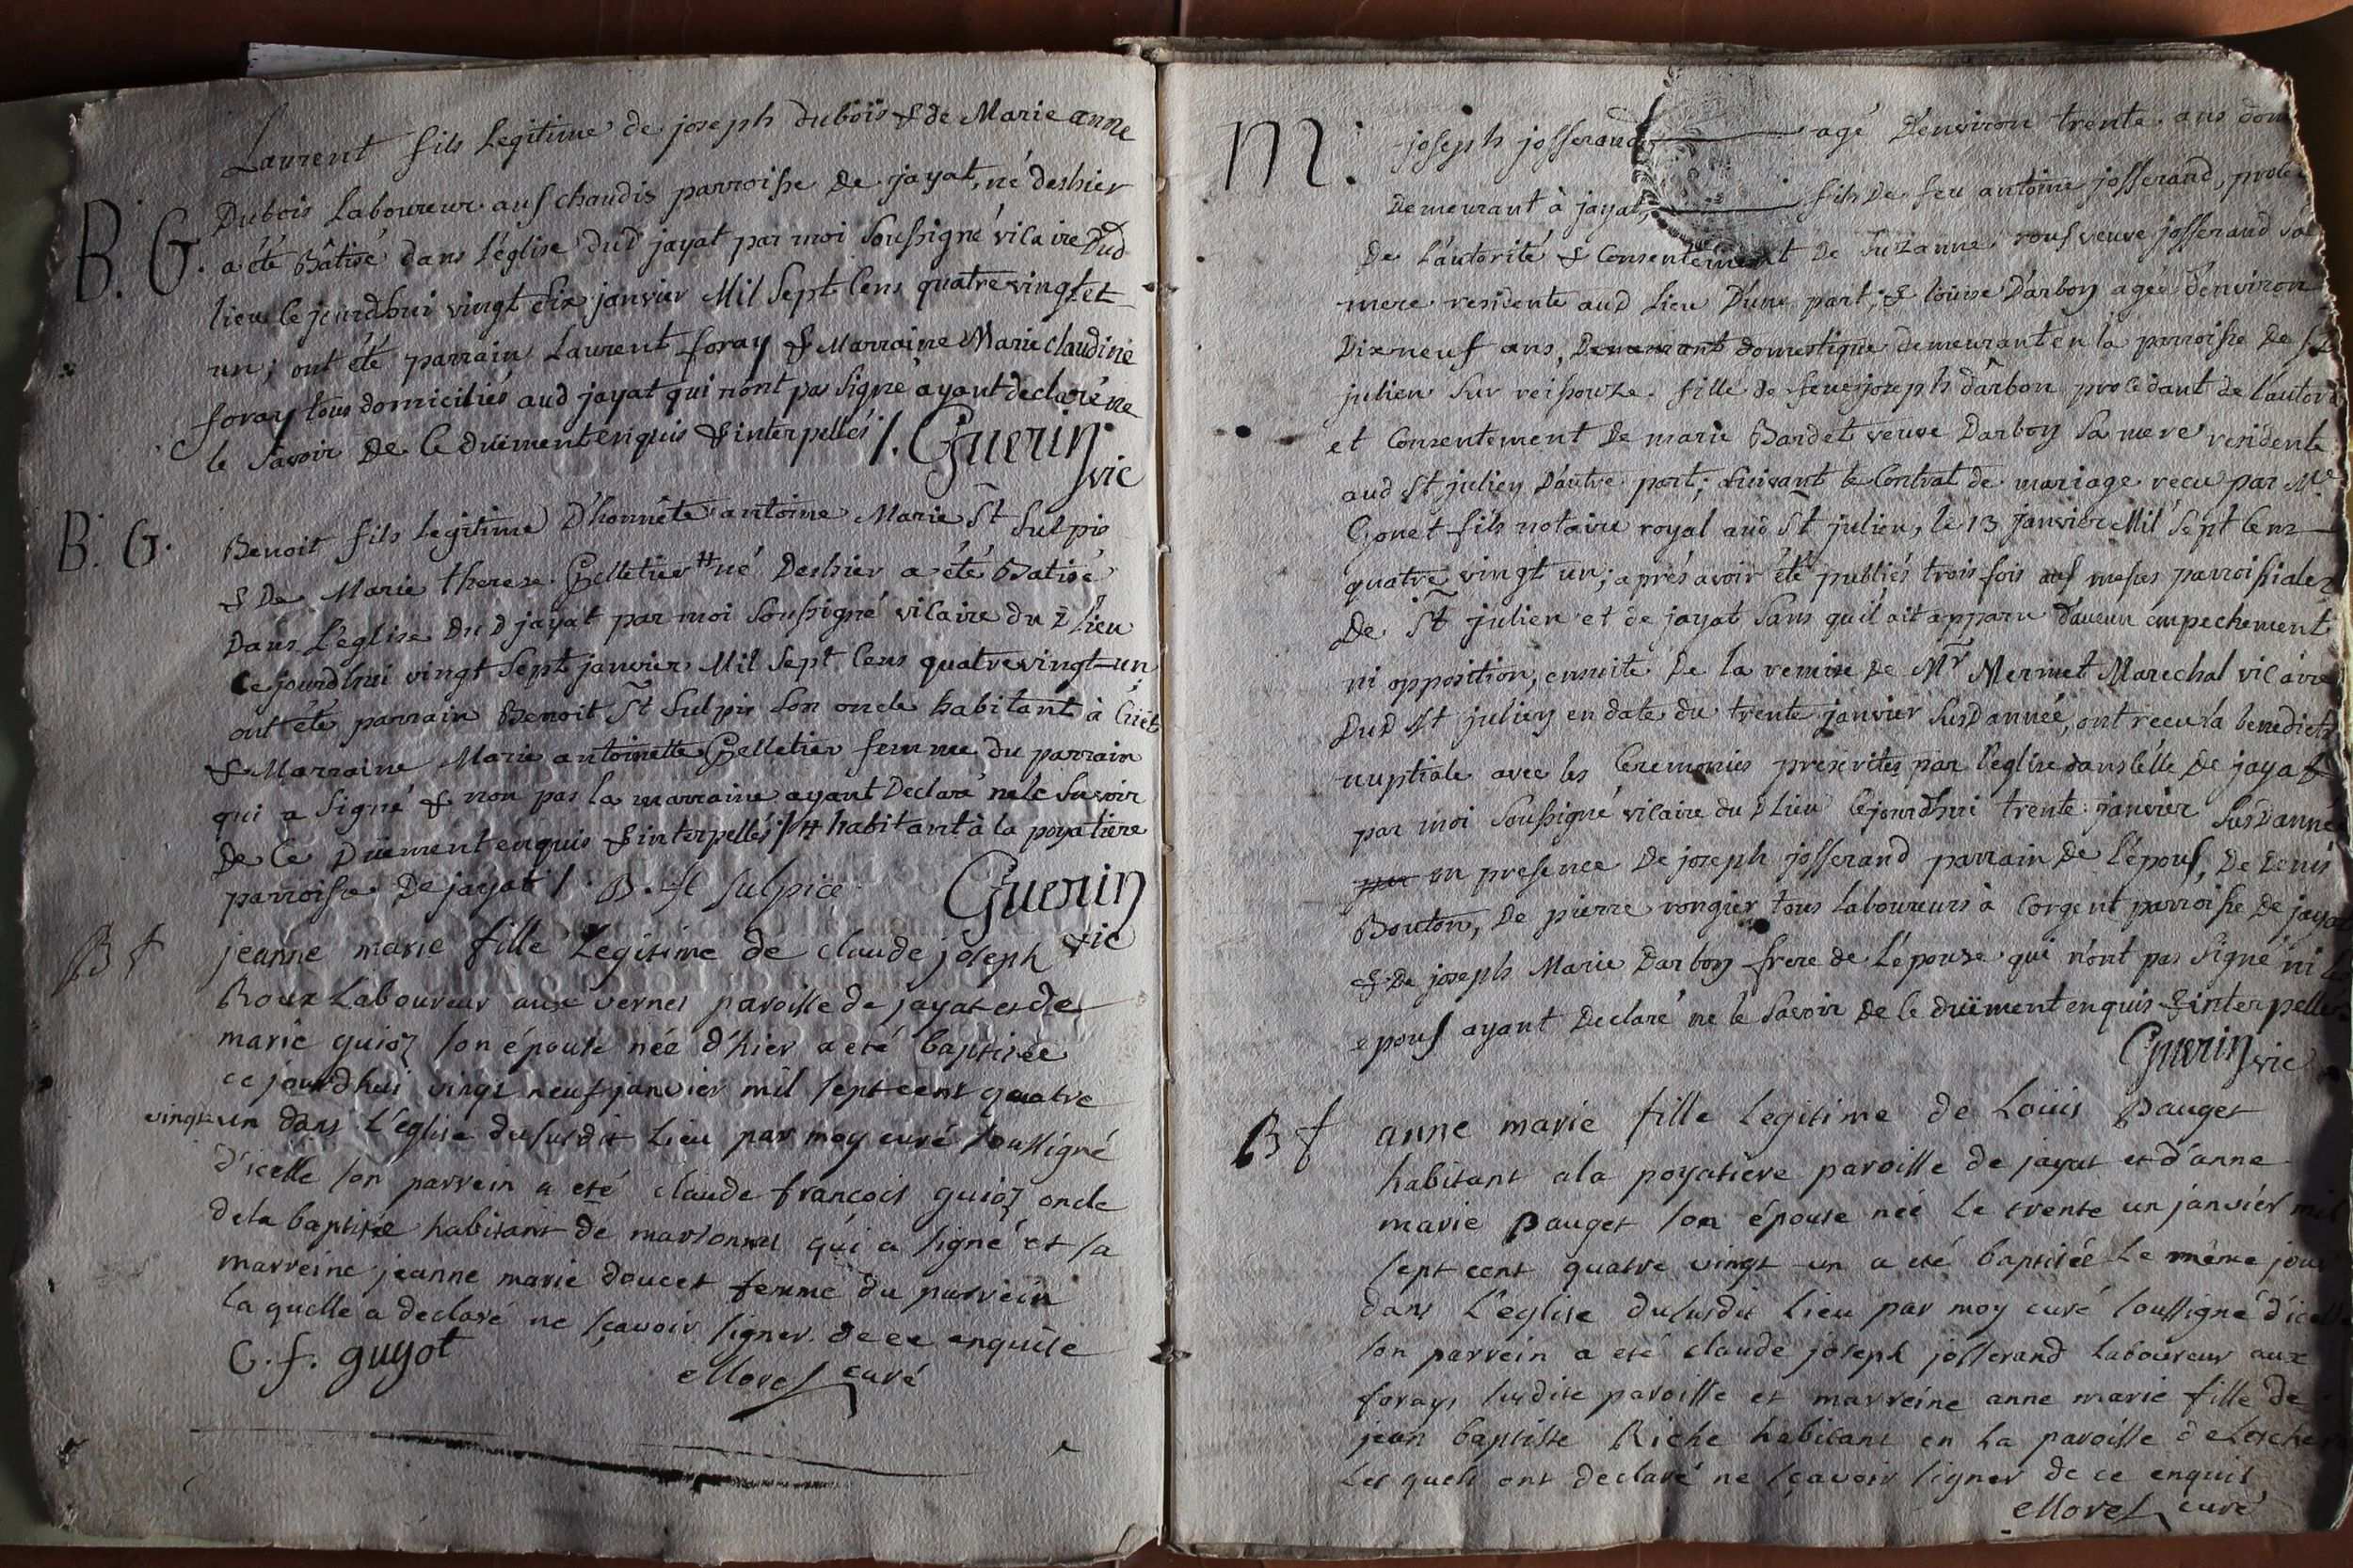 Laurent fils legitime de joseph dubois & de Marie anne
B. G. Dubois laboureur aus chaudis parroisse de jayat, né deshier
a été Bâtisé dans l'église dud jayat par moi soussigné vicaire dud
lieu cejourdhui vingt six janvier Mil Sept Cens quatrevingt et
un; ont été parrain Laurent foray & Marraine Marie claudine
foray tous domiciliés aud jayat qui n'ont pas signé ayant declaré ne
le savoir de ce düement enquis & interpellés /. Guerin
vic
B. G. Benoit fils legitime D'honnête antoine Marie St Sulpis
& De Marie therese Pelletier # né Deshier a été Batisé
Dans L'eglise Du D jayat par moi soussigné vicaire du d Lieu
Cejourdhui vingt Sept janvier Mil Sept Cens quatrevingt-un
ont été parrain Benoit St Sulpis son oncle habitant à
& Marraine Marie antoinette Pelletier femme du parrain
qui a signé & non pas la marraine ayant Declaré ne le savoir
De Ce Düement enquis & interpellés /. # habitant à la poyatiere
parroisse De jayat /. B. St Sulpice Guerin
vic
B f jeanne marie fille Legitime de claude joseph
Roux Laboureur aux vernes paroisse de jayat et de
marie guioz son épouse née d'hier a eté baptisée
ce jourdhui vingt neuf janvier mil sept cent quatre
vingt un dans L'église du susdit Lieu par moy curé soussigné
d'icelle son parrein a eté claude françois guioz oncle
dela baptisée habitant de marsonnas qui a signé et sa
marreine jeanne marie doucet femme du parrein
la quelle a declaré ne sçavoir signer de ce enquise
C. f. guyot Morel curé
M. joseph josserand agé D'environ trente ans
Demeurant à jayat fils De feu antoine josserand,
De L'autorité & Consentement De Suzanne rous veuve josserand sa
mere residente aud Lieu D'une part; & loüise Darbon agée d'environ
Dix neuf ans, Demeurant domestique demeurant en la parroisse De St
julien sur reissouze fille de feu joseph darbon procedant de l'autori
et Consentement De marie Bardet veuve Darbon sa mere residente
aud St julien D'autre part; suivant le Contrat de mariage recu par Me
Gonet fils notaire royal aud St julien, le 13 janvier Mil Sept Cens
quatre vingt un; aprés avoir été publiés trois fois aus messes parroissiales
De St julien et de jayat sans qu'il ait apparu d'aucun empechement
ni opposition, ensuite De la remise De Mr Mermet Marechal vicaire
Dud St julien en date du trente janvier susd année, ont recu la benedict
nuptiale avec les Ceremonies prescrites par l'eglise dans célle De jayat
par moi soussigné vicaire du D Lieu Cejourdhui trente janvier susd année
par en presence De joseph josserand parrain De L'épous, De Denis
Bouton, De pierre rongier tous Laboureurs à Corgent parroisse De jayat
& De joseph Marie Darbon frere de L'épouse qui n'ont pas signé ni
epous ayant Declaré ne le savoir De Ce düement enquis & interpellés
Guerin vic
B f anne marie fille Legitime de Louis Pauget
habitant ala poyatiere paroisse de jayat et d'anne
marie Pauget son épouse née Le trente un janviér mil
sept cent quatre vingt un a eté baptisée Le même jour
dans L'eglise du susdit Lieu par moy curé soussigné d'icelle
son parrein a eté claude joseph josserand Laboureur aux
forays susdite paroisse et marreine anne marie fille de
jean baptiste Riche habitant en La paroisse
Les quels ont declaré ne sçavoir signer de ce enquis
Morel curé